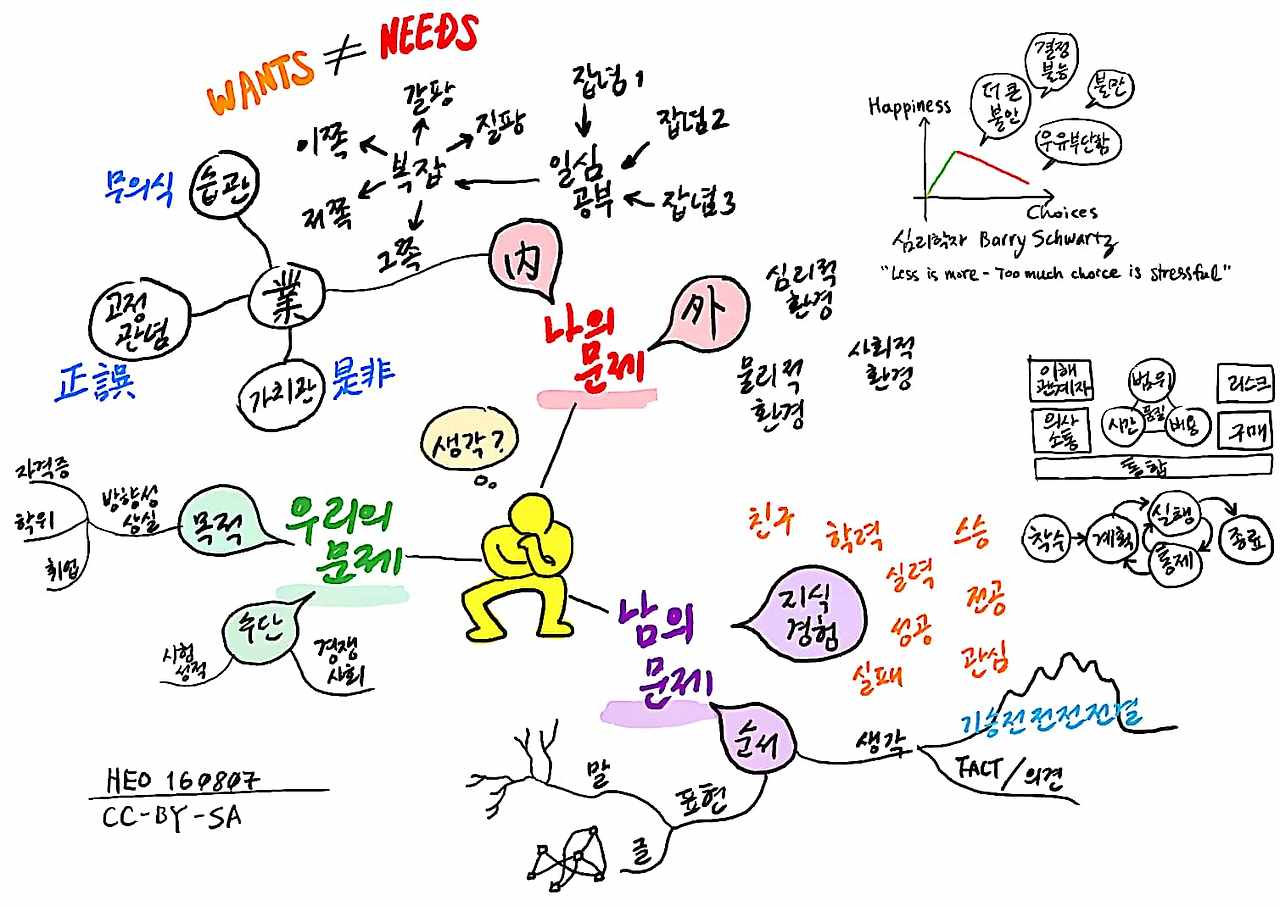 WANTS ≠ NEEDS
갈팡
질팡
이쪽
복잡
저쪽
그쪽
잡념1
잡념2
일심
공부
잡념3
무의식
습관
業
고정
관념
正誤
가치관
是非
内
나의
문제
外
심리적
환경
물리적
환경
사회적
환경
Happiness
결정
불능
더 큰
불안
불만
우유부단함
Choices
심리학자 Barry Schwartz
"Less is more - Too much choice is stressful"
이해
관계자
의사
소통
범위
시간
품질
비용
리스크
구매
통합
착수
계획
실행
통제
종료
생각?
우리의
문제
목적
방향성
상실
자격증
학위
취업
수단
시험
성적
경쟁
사회
남의
문제
지식
경험
친구
학력
스승
실력
전공
성공
관심
실패
순서
생각
기승전전전전결
FACT/의견
표현
말
글
HEO 160807
CC-BY-SA